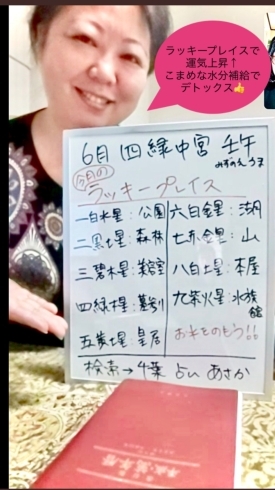 ラッキープレイスで
運気上昇↑
こまめな水分補給で
デトックス👍
6月 四緑中宮 壬午
みずのえ うま
今月の
ラッキープレイス
一白水星:公園
二黒土星:森林
三碧木星:美容室
四緑木星:墓参り
五黄土星:皇居
六白金星:湖
七赤金星:山
八白土星:本屋
九紫火星:水族館
お水をのもう!!
検索→千葉 占い あさか